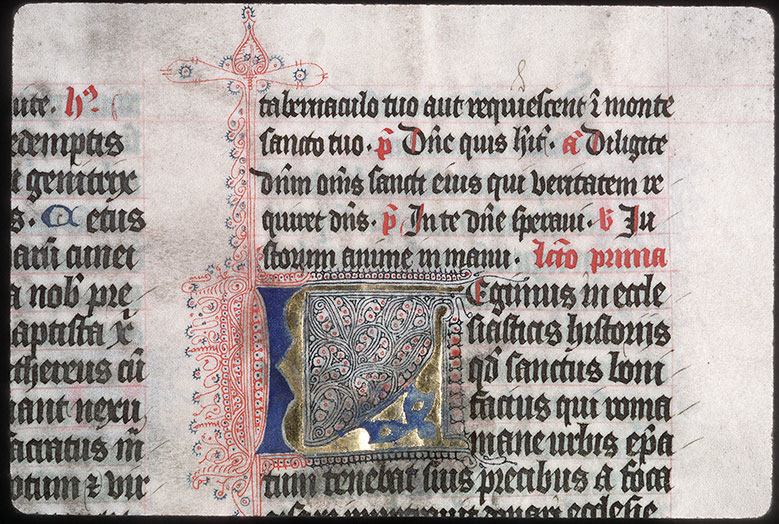 uite. h9
edemptis
i genitrix
s. Cetus
arū cunct
a nob pre
aptista x̄
thereus cū
ant neruu
acratus m̄
otum ⁊ vir
tabernaculo tuo aut requiescent ī monte
sancto tuo. p̄ Dn̄e quis hit̄. a Diligite
dn̄m om̄s sancti eius qui veritatem re
quiret dn̄s. p̄ In te dn̄e speraui. v Ju
storum anime in manu. lcō prima
LEgimus in eccle
siasticis historiis
qd̄ sanctus boni
facius qui roma
mane urbis ep̄a
tum tenebat suis precibus a foca